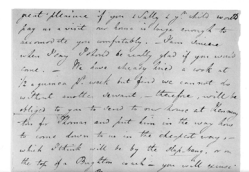 great pleasure if you & Sally & yr child would
pay us a visit our house is large enough to
accommodate you comfortably. I am sincere
when I say I should be really glad if you would
come. — We have already hired a cook at
a guinea pr week but find we can not do
without another servant therefore, will be
obliged to you to send to our house at
for and put him in the way how
to come down to us in the cheapest way
which I think will be by the or on
the top of a Brighton coach — you will